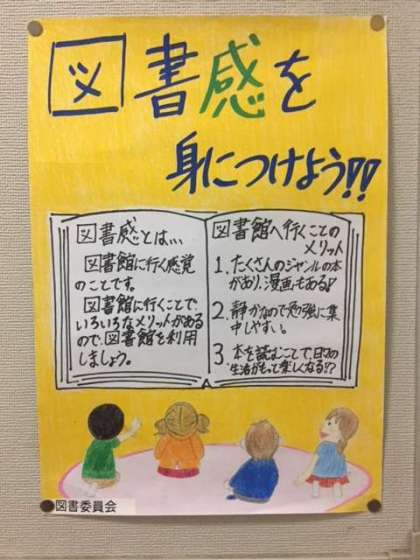 図書感を
身につけよう!!
図書感とは、、、
図書館に行く感覚
のことです。
図書館に行くことで、
いろいろなメリットがある
ので、図書館を利用
しましょう。
図書館へ行くことの
メリット
1、たくさんのジャンルの本
があり、漫画もある!?
2、静かなので勉強に集
中しやすい。
3、本を読むことで、日々の
生活がもって楽しくなる!?
図書委員会